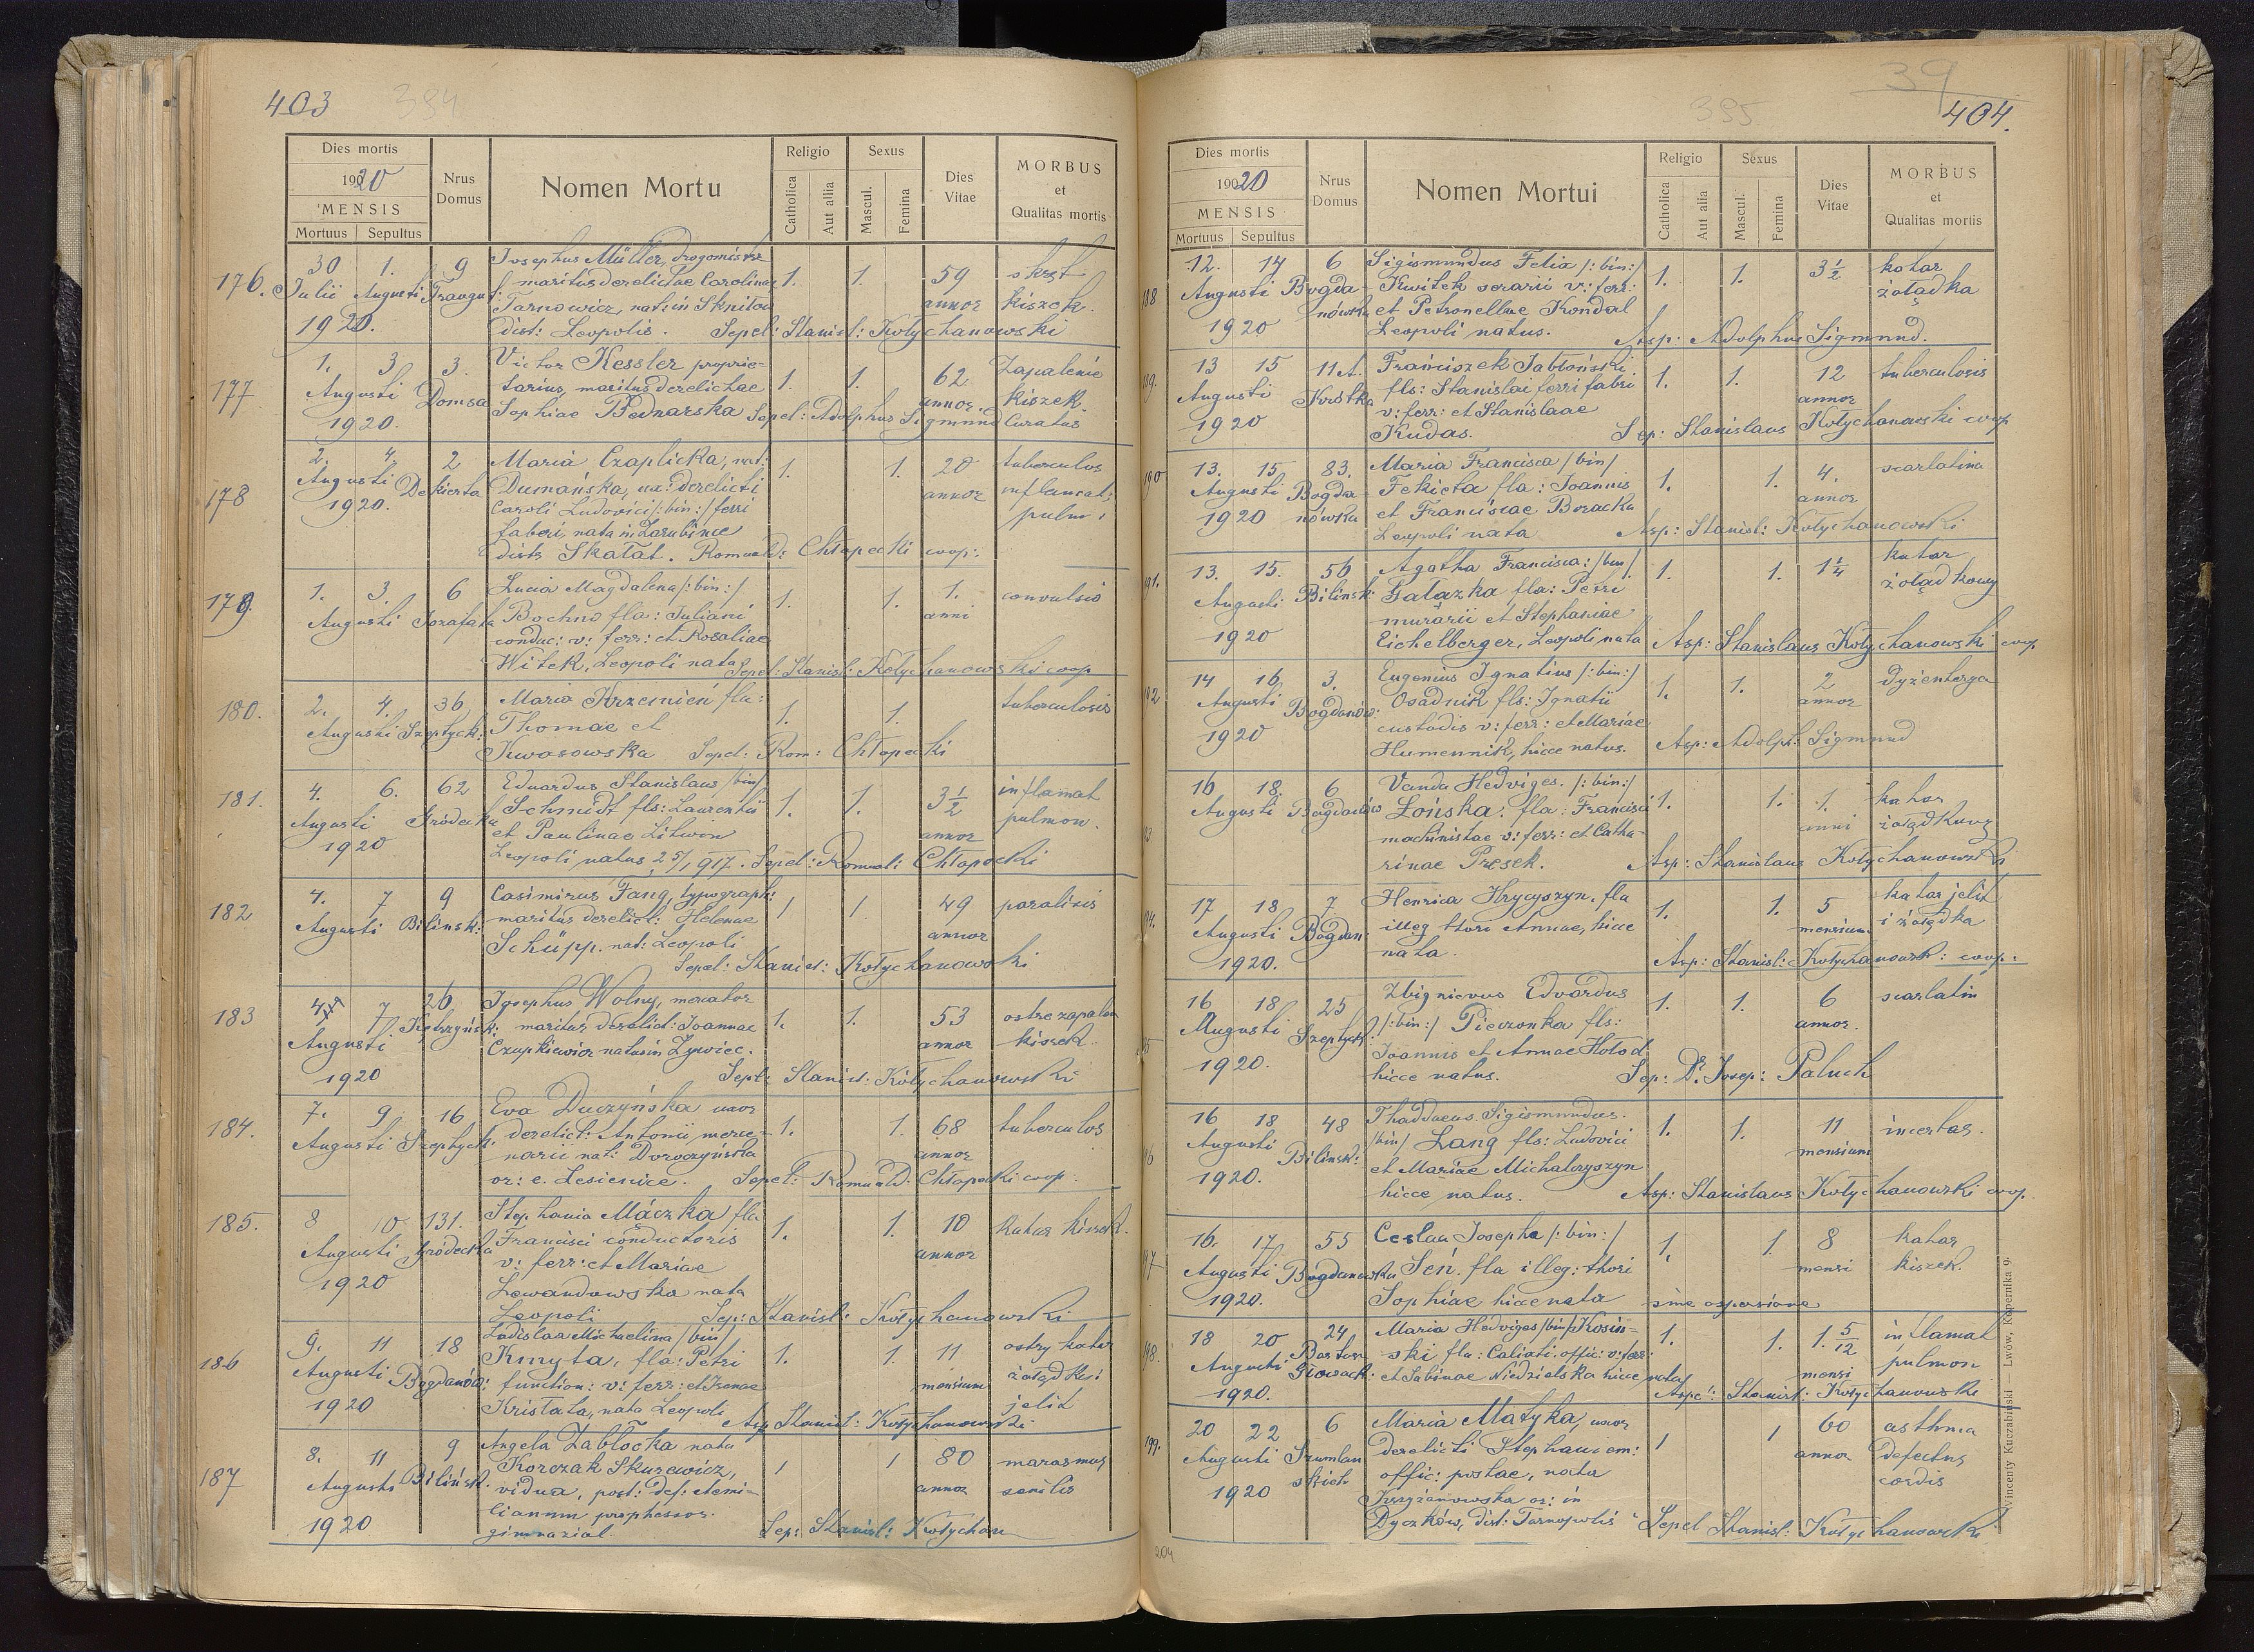 403
384
Dies mortis
1920
MENSIS
Mortuus Sepultus
Nrus Domus
Nomen Mortu
Religio
Catholica Aut alia
Sexus
Mascul. Femina
Dies Vitae
MORBUS
et
Qualitas mortis
176. 30 1. 9 Josephus Müller, 1. 1. 59 skręt
Julii Augusti maritus derelictae Carolinae annor kiszek.
Tarnowicz, nat: in Skniłow
1920. dist: Leopolis. Sepel: Stanisl: Kołychanowski
177 1. 3 3. Victor Kessler proprie- 1. 1. 62 Zapalenie
Augusti Domsa tarius, maritus derelictae annor. kiszek.
1920. Sophiae Bednarska Sepel: Adolphus Sigmund Curatus
178 2. 4. 2 Maria Czaplicka, nat: 1. 1. 20 tuberculos
Augusti Dekierta Dumańska, ux: derelicti annor inflamat:
1920. Caroli Ludovici /:bin:/ ferri pulm:
fabri, nata in Zarubińce
distr Skałat. Romuald: Chłapecki coop:
179. 1. 3. 6 Lucia Magdalena /:bin:/ 1. 1. 1. convulsio
Augusti Jozafata Bochno fla: Juliani anni
conduc: v: ferr: et Rosaliae
Witek, Leopoli nata Sepel: Stanisl: Kołychanowski coop
180. 2. 4. 36 Maria Krzemień fla: 1. 1. tuberculosis
Augusti Szeptyck: Thomae et
Kwasowska Sepel: Rom: Chłapecki
181. 4. 6. 62 Eduardus Stanislaus /bin/ 1. 1. 3 1/2 inflamat
Augusti Gródecka Schmidt fls: Laurentii annor pulmon.
1920 et Paulinae Litwin
Leopoli natus 25/1 917. Sepel: Romual: Chłapecki
182 4. 7 9 Casimirus Fang, typograph: 1 1. 49 paralisis
Augusti Bilinsk: maritus derelict: Helenae annor
Schüpp. nat: Leopoli
Sepel: Stanisl: Kołychanowski
183 4. 7 26 Josephus Wolny, mercator 1. 1. 53 ostre zapalen
Augusti Kętrzyńsk: maritus derelict: Joannae annor kiszek.
Czupkiewicz natus in Żywiec.
1920 Sepel: Stanisl: Kołychanowski
184. 7. 9 16 Eva Duczyńska uxor 1. 1. 68 tuberculos
Augusti Szeptyck. derelict: Antonii merce- annor
narii nat: Doroczyńska
or: e. Lesienice. Sepel: Romuald: Chłapecki coop:
185. 8 10 131. Stephania Mączka fla 1. 1. 10 katar kiszek.
Augusti Gródecka Francisci conductoris annor
1920 v: ferr: et Mariae
Lewandowska nata
Leopoli Sep: Stanisl: Kołychanowski
186 9. 11 18 Ladislaa Michaelina /bin/ 1. 1. 11 ostry katar
Augusti Bogdanów: Kmyta, fla: Petri mensium żołądka i
1920 function: v: ferr: et Irenae jelit
Kristala, nata Leopoli Asp Stanisl: Kołychanowski
187 8. 11 9 Angela Zabłocka nata 1 1 80 marasmus
Augusti Bilińsk. Korczak Skurewicz, annor senilis
vidua, post: def: Aemi-
1920 lianum prophessor.
gimnazial. Sep: Stanisl: Kołychan
39
395
404.
Dies mortis
1920
MENSIS
Mortuus Sepultus
Nrus Domus
Nomen Mortui
Religio
Catholica Aut alia
Sexus
Mascul. Femina
Dies Vitae
MORBUS
et
Qualitas mortis
188 12. 14 6 Sigismundus Felix /:bin:/ 1. 1. 3 1/2 katar
Augusti Bogda- Kwitek serarii v: ferr: żołądka
nówka et Petronellae Kondal
1920 Leopoli natus. Asp: Adolphus Sigmund.
189. 13 15 11 A. Franciszek Jabłoński. 1. 1. 12 tuberculosis
Augusti fls: Stanislai ferri fabri annor
v: ferr: et Stanislaae
1920 Kudas. Sep: Stanislaus Kołychanowski coop
190 13. 15 83. Maria Francisca /bin/ 1. 1. 4. scarlatina
Augusti Bogda- Fekieta fla: Joannis annor
1920 nówka et Franciscae Boracka
Leopoli nata Asp: Stanisl: Kołychanowski
191. 13. 15. 56 Agatha Francisca: /bin/ 1. 1. 1 1/4 katar
Augusti Bilinsk: Gałązka fla: Petri żołądkowy
murarii et Stephaniae
1920 Eichelberger, Leopoli nata Asp: Stanislaus Kołychanowski coop.
192 14 16. 3. Eugenius Ignatius /:bin:/ 1. 1. 2 dyzenterya
Augusti Bogdanów: Osadnik fls: Ignatii annor
1920 custodis v: ferr: et Mariae
Humennik, hicce natus. Asp: Adolph: Sigmund
16 18. 6 Vanda Hedviges. /:bin:/ 1. 1. 1. katar
Augusti Bogdanów Łońska: fla: Francisci anni żołądkowy
machinistae v: ferr: et Catha-
rinae Presek. Asp: Stanislaus Kołychanowski
94. 17 18 7 Henrica Hrycyszyn. fla 1. 1. 5 katar jelit
Augusti Bogdan: illeg thori Annae, hicce mensium i żołądka
1920. nata. Asp: Stanisl: Kołychanowsk: coop:
16 18 25 Zbignievus Edvardus 1. 1. 6 scarlatin
Augusti Szeptyck: /:bin:/ Pieczonka fls: annor.
Joannis et Annae Hołod
1920. hicce natus. Sep: Dr. Josep: Paluch
16 18 48 Thaddaeus Sigismundus. 1. 1. 11 incertas.
Augusti Bilinsk: /bin/ Lang fls: Ludovici mensium
et Mariae Michalczyszyn
1920. hicce natus. Asp: Stanislaus Kołychanowski coop.
16. 17 55 Ceslaa Josepha /:bin:/ 1. 1. 8 katar
Augusti Bogdanowka Seń. fla illeg: thori mensi kiszek.
1920. Sophiae hicce nata sine aspersione
98. 18 20 24 Maria Hedviges /bin/ Kosin- 1. 1. 1. 5/12 inflamat
Augusti Bartosz Głowack: ski fla: offic: v: ferr: mensi pulmon
1920. et Sabinae Niedzielska hicce nata Asp: Stanisl: Kołychanowski
199. 20 22 6 Maria Matyka, uxor 1 1 60 asthma
Augusti derelicti Stephani em: annor defectus
1920 offic: postae, nata cordis
Krzyżanowska or: in
Dyczków, dist: Tarnopolis Sepel Stanisl: Kołychanowski
204
Vincenty Kuczabiński — Lwów, Kopernika 9.